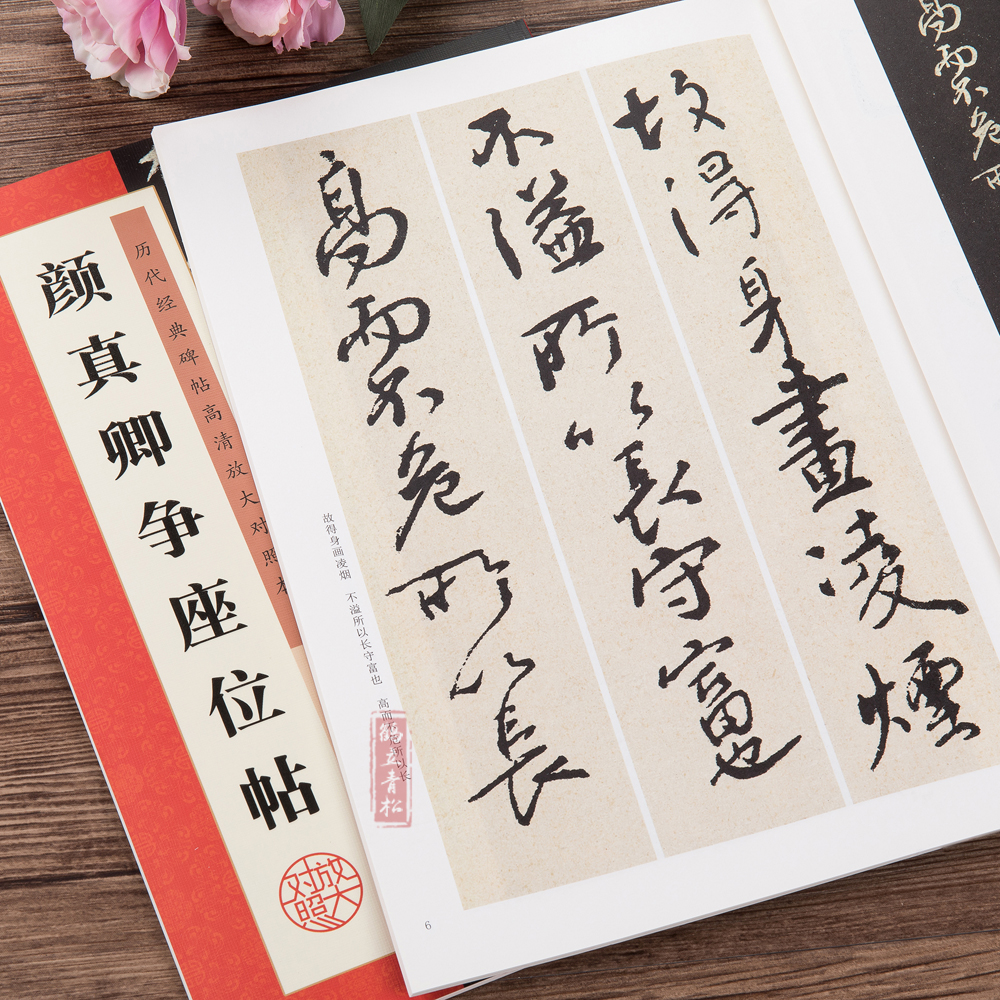 颜真卿争座位帖
历代经典碑帖高清放大对照本
放大对照
故得身畫凌煙
不溢所以長守富也
高而不危所以長
故得身画凌烟 不溢所以长守富也 高而不危所以长
鹤立青松
6
高而不危所